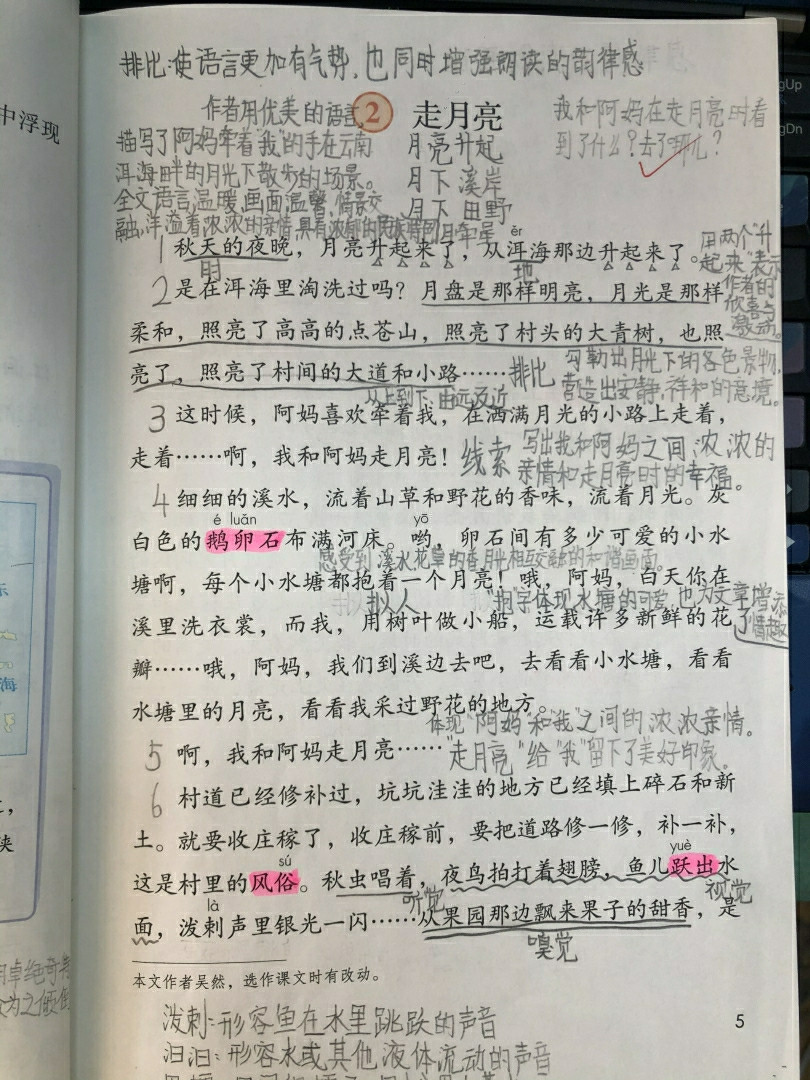 中浮现
排比:使语言更加有气势,也同时增强朗读的韵律感
作者用优美的语言
描写了阿妈牵着"我"的手在云南
洱海畔的月光下散步的场景。
全文语言温暖,画面温馨,情景交
融,洋溢着浓浓的亲情,具有浓郁的
2 走月亮
月亮升起
月下溪岸
月下田野
我和阿妈在走月亮时看
到了什么?去了哪儿?
ěr
1 秋天的夜晚,月亮升起来了,从洱海那边升起来了。
时
地
用两个"升
起来"表示
作者的
欣喜与
激动。
2 是在洱海里淘洗过吗?月盘是那样明亮,月光是那样
柔和,照亮了高高的点苍山,照亮了村头的大青树,也照
亮了,照亮了村间的大道和小路……
排比
勾勒出月光下的各色景物,
营造出安静,祥和的意境。
从上到下,由远及近
3 这时候,阿妈喜欢牵着我,在洒满月光的小路上走着,
走着……啊,我和阿妈走月亮!
线索
写出我和阿妈之间浓浓的
亲情和走月亮时的幸福。
4 细细的溪水,流着山草和野花的香味,流着月光。灰
é luǎn yō
白色的鹅卵石布满河床。哟,卵石间有多少可爱的小水
感受到溪水花草的香月光相互交融的和谐画面。
塘啊,每个小水塘都抱着一个月亮!哦,阿妈,白天你在
拟人
"抱"字体现水塘的可爱,也为文章增添
了情趣
溪里洗衣裳,而我,用树叶做小船,运载许多新鲜的花
瓣……哦,阿妈,我们到溪边去吧,去看看小水塘,看看
水塘里的月亮,看看我采过野花的地方。
体现"阿妈"和"我"之间的浓浓亲情。
5 啊,我和阿妈走月亮……
"走月亮"给"我"留下了美好印象。
6 村道已经修补过,坑坑洼洼的地方已经填上碎石和新
土。就要收庄稼了,收庄稼前,要把道路修一修,补一补,
sú yuè
这是村里的风俗。秋虫唱着,夜鸟拍打着翅膀,鱼儿跃出水
听觉
视觉
là
面,泼剌声里银光一闪……从果园那边飘来果子的甜香,是
嗅觉
本文作者吴然,选作课文时有改动。
泼剌:形容鱼在水里跳跃的声音
汩汩:形容水或其他液体流动的声音
5